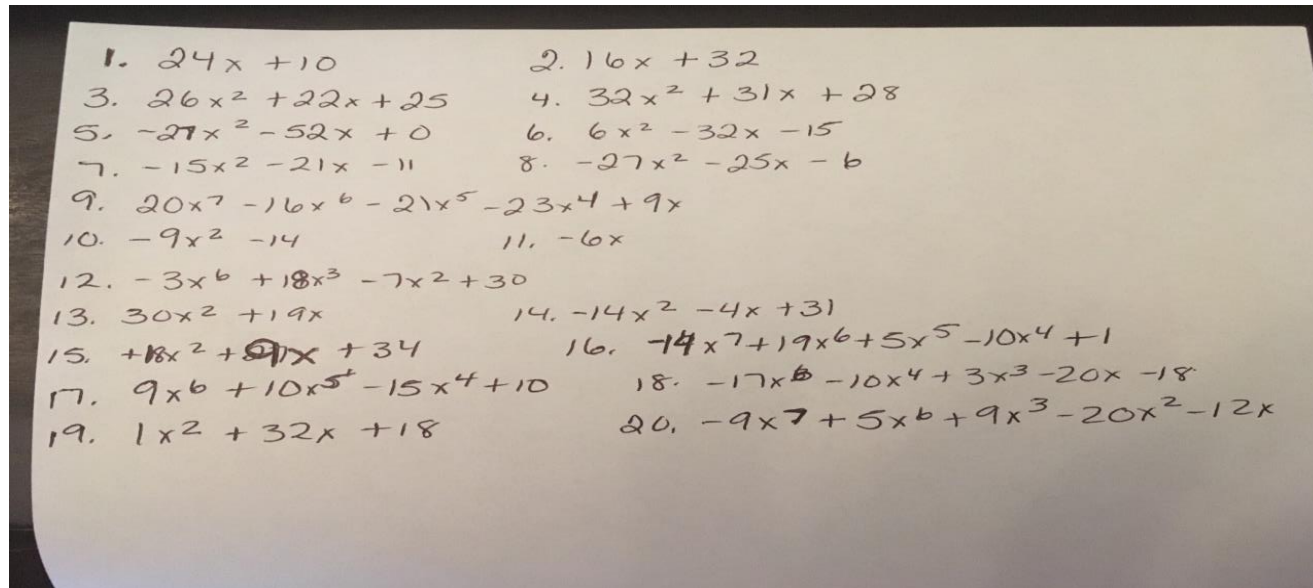 1. 24x + 10 2. 16x + 32
3. 26x² + 22x + 25 4. 32x² + 31x + 28
5. -27x² - 52x + 0 6. 6x² - 32x - 15
7. -15x² - 21x - 11 8. -27x² - 25x - 6
9. 20x⁷ - 16x⁶ - 21x⁵ - 23x⁴ + 9x
10. -9x² - 14 11. -6x
12. -3x⁶ + 18x³ - 7x² + 30
13. 30x² + 19x 14. -14x² - 4x + 31
15. +18x² + x + 34 16. -14x⁷ + 19x⁶ + 5x⁵ - 10x⁴ + 1
17. 9x⁶ + 10x⁵ - 15x⁴ + 10 18. -17x⁶ - 10x⁴ + 3x³ - 20x - 18
19. 1x² + 32x + 18 20. -9x⁷ + 5x⁶ + 9x³ - 20x² - 12x